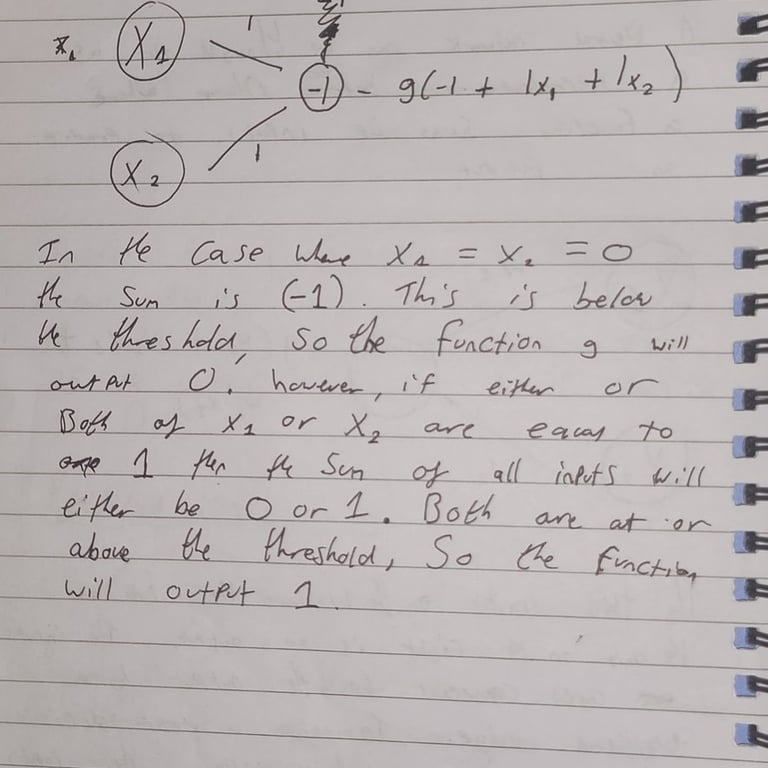 1
X₁ X₁
-1 - g(-1 + 1x₁ + 1x₂)
1
X₂
In the case where X₁ = X₂ = 0
the sum is (-1). This is below
the threshold, so the function g will
output 0. however, if either or
Both of X₁ or X₂ are equal to
one 1 then the sum of all inputs will
either be 0 or 1. Both are at or
above the threshold, So the function
will output 1.